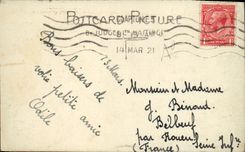 POSTCARD PICTURE
BY JUDGES LTD HASTINGS
14 MAR 21
13 Mars.
Bons baisers de
votre petite amie
Odile
Monsieur et Madame
J. Bénard
Belbeuf
par Rouen
(France) Seine Inf